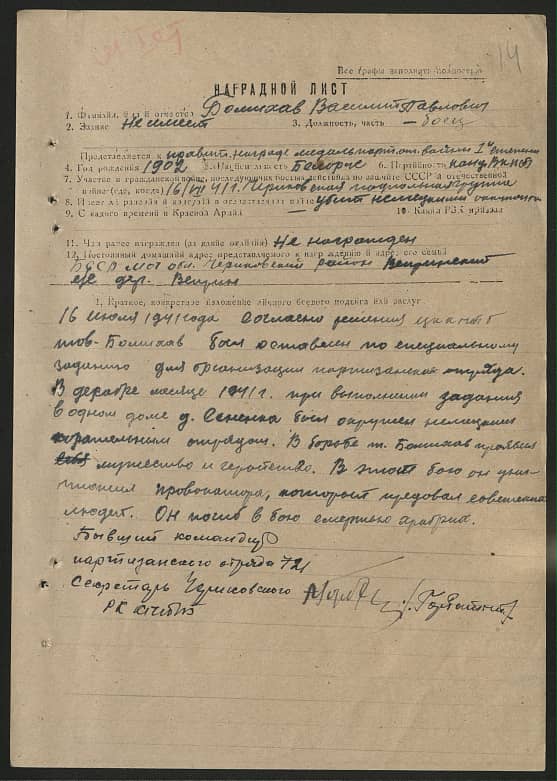 14
Все графы заполнять полностью
НАГРАДНОЙ ЛИСТ
1. Фамилия, имя и отчество Домихав Василий Павлович
2. Звание Не имеет 3. Должность, часть — боец
Представляется к правит. награде медаль парт. от. войны 1й степени
4. Год рождения 1902 5. Национальность Белорус 6. Партийность канд. ВКПб
7. Участие в гражданской войне, последующих боевых действиях по защите СССР и отечественной
войне (где, когда) 16/VII 41 г. Чериковская подпольная группа
8. Имеет ли ранения и контузии в отечественной войне убит немецкими
9. С какого времени в Красной Армии 10. Каким РВК призван
11. Чем ранее награжден (за какие отличия) Не награжден
12. Постоянный домашний адрес представляемого к награждению и адрес его семьи
БССР Мог. обл. Чериковский район Вепринский
с/с дер. Веприн
1. Краткое, конкретное изложение личного боевого подвига или заслуг
16 июля 1941 года Согласно решения ЦК КП(б)Б
тов. Бомихав был оставлен по специальному
заданию для организации партизанского отряда.
В декабре месяце 1941 г. при выполнении задания
в одном доме д. Сененка был окружен немецким
карательным отрядом. В борьбе т. Бомихав проявил
мужество и геройство. В этом бою он уни-
чтожил провокатора, который предавал советских
людей. Он погиб в бою смертью храбрых.
Бывший командир
партизанского отряда 721
Секретарь Чериковского
РК КП(б)Б